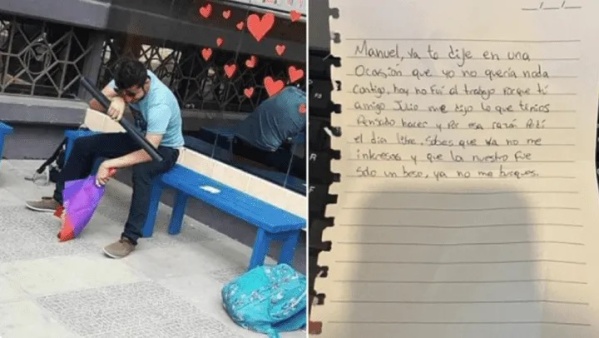 Manuel, ya te dije en una
Ocasión que yo no quería nada
contigo, hoy no fui al trabajo porque tú
amigo Julio me dijo lo que tenías
Pensado hacer y por esa razón Pedí
el día libre, Sabes que ya no me
interesas y que lo nuestro fue
solo un beso, ya no me busques.